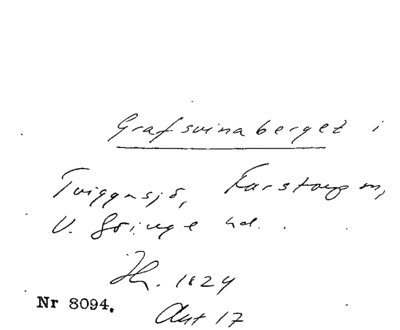 Grafsvinaberget i
Tviggasjö, Farstorp sn,
V. Göinge hd.
1824
Nr 8094.
Akt 17